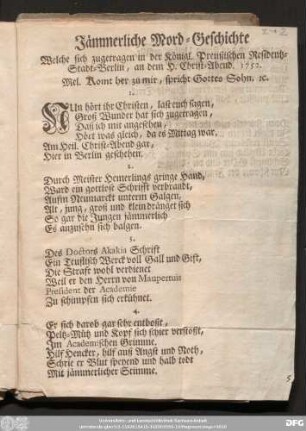 Jämmerliche Mord-Geschichte
Welche sich zugetragen in der Königl. Preußischen Residentz-
Stadt-Berlin, an dem H. Christ-Abend. 1752.
Mel. Komt her zu mir, spricht Gottes Sohn. ꝛc.
1.
NUn hört ihr Christen, laßt euch sagen,
Groß Wunder hat sich zugetragen,
Daß ich mit angesehen,
Hört was gleich, da es Mittag war.
Am Heil. Christ-Abend gar,
Hier in Berlin geschehen.
2.
Durch Meister Hemerlings gringe Hand,
Ward ein gottlose Schrifft verbrandt,
Auffn Neumarckt unterm Galgen,
Alt, jung, groß und klein dränget sich
So gar die Jungen jämmerlich
Es anzusehn sich balgen.
3.
Des Doctors Akakia Schrift
Ein Teuflisch Werck voll Gall und Gift,
Die Strafe wohl verdienet
Weil er den Herrn von Maupertuis
Præsident der Academie
Zu schimpfen sich erkühnet.
4.
Er sich darob gar sehr entboßt
Peltz-Mütz und Kopf sich schier verstößt,
Im Academschen Grimme.
Hilf Hencker, hilf aus Angst und Noth,
Schrie er Blut speyend und halb todt
Mit jämmerlicher Stimme.
5